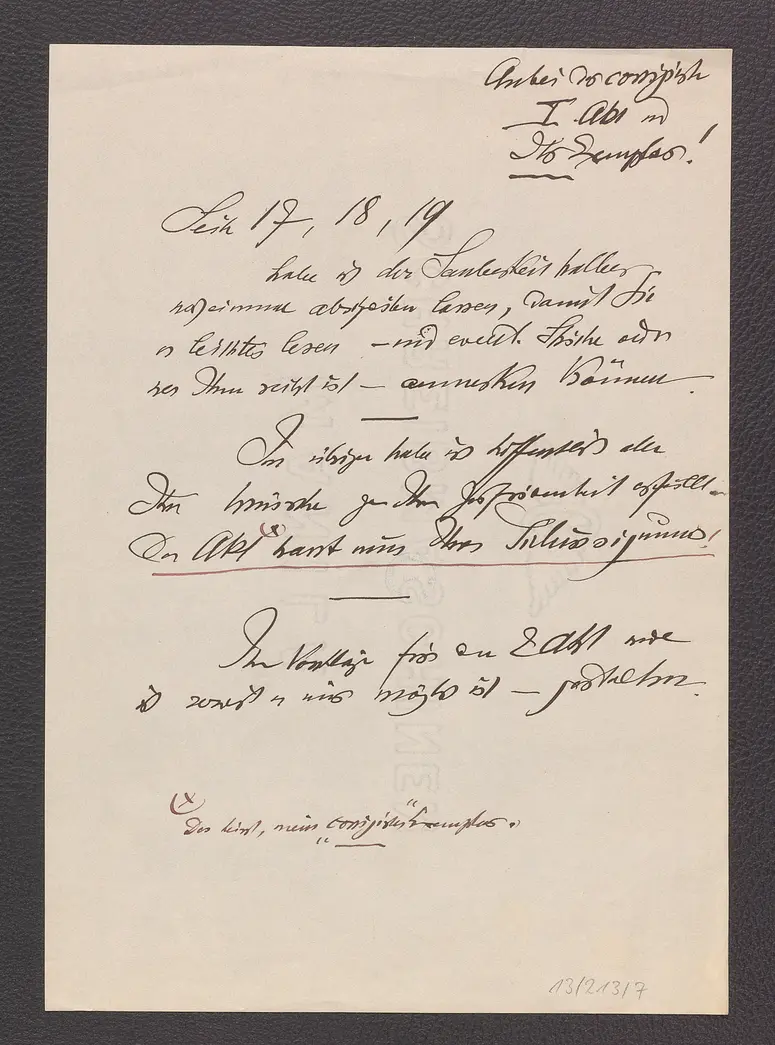 Anbei das corrigirte
I. Akt und
Ihr Exemplar!
Seite 17, 18, 19
habe ich der Sauberkeit halber
noch einmal abschreiben lassen, damit Sie
es leichter lesen – und event. Striche oder
was Ihnen recht ist – anmerken können.
Im übrigen habe ich hoffentlich alle
Ihre Wünsche zu Ihrer Zufriedenheit erfüllt.
Der Akt (x) harrt nun Ihres
Ihre Vorschläge für den 2 Akt werde
ich soweit es mir möglich ist – gestalten.
(x)
Das heisst, mein "corrigirtes" Exemplar.
13/213/7